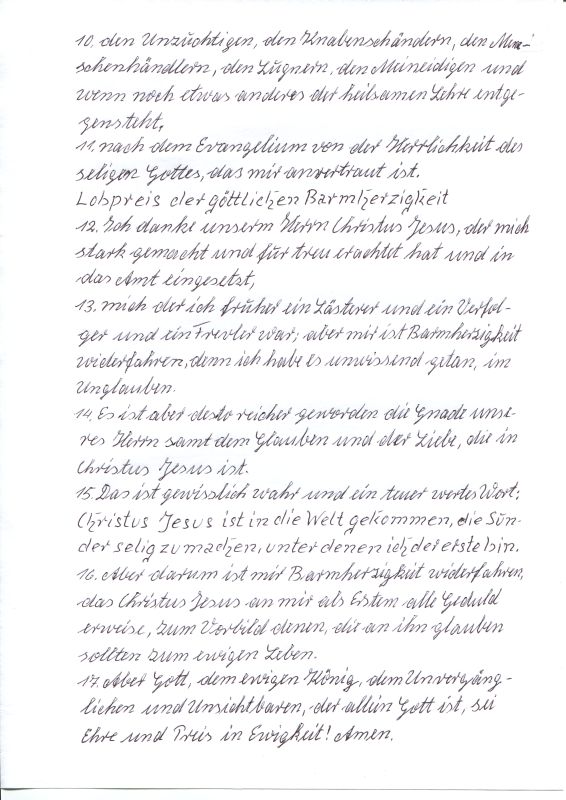 10. den Unzüchtigen, den Knabenschändern, den Men-
schenhändlern, den Lügnern, den Meineidigen und
wenn noch etwas anderes der heilsamen Lehre entge-
gensteht,
11. nach dem Evangelium von der Herrlichkeit des
seligen Gottes, das mir anvertraut ist.
Lobpreis der göttlichen Barmherzigkeit
12. Ich danke unserm Herrn Christus Jesus, der mich
stark gemacht und für treu erachtet hat und in
das Amt eingesetzt,
13. mich der ich früher ein Lästerer und ein Verfol-
ger und ein Frevler war; aber mir ist Barmherzigkeit
widerfahren, denn ich habe es unwissend getan, im
Unglauben.
14. Es ist aber desto reicher geworden die Gnade unse-
res Herrn samt dem Glauben und der Liebe, die in
Christus Jesus ist.
15. Das ist gewisslich wahr und ein teuer wertes Wort:
Christus Jesus ist in die Welt gekommen, die Sün-
der selig zu machen, unter denen ich der erste bin.
16. Aber darum ist mir Barmherzigkeit widerfahren,
das Christus Jesus an mir als Erstem alle Geduld
erweise, zum Vorbild denen, die an ihn glauben
sollten zum ewigen Leben.
17. Aber Gott, dem ewigen König, dem Unvergäng-
lichen und Unsichtbaren, der allein Gott ist, sei
Ehre und Preis in Ewigkeit! Amen.